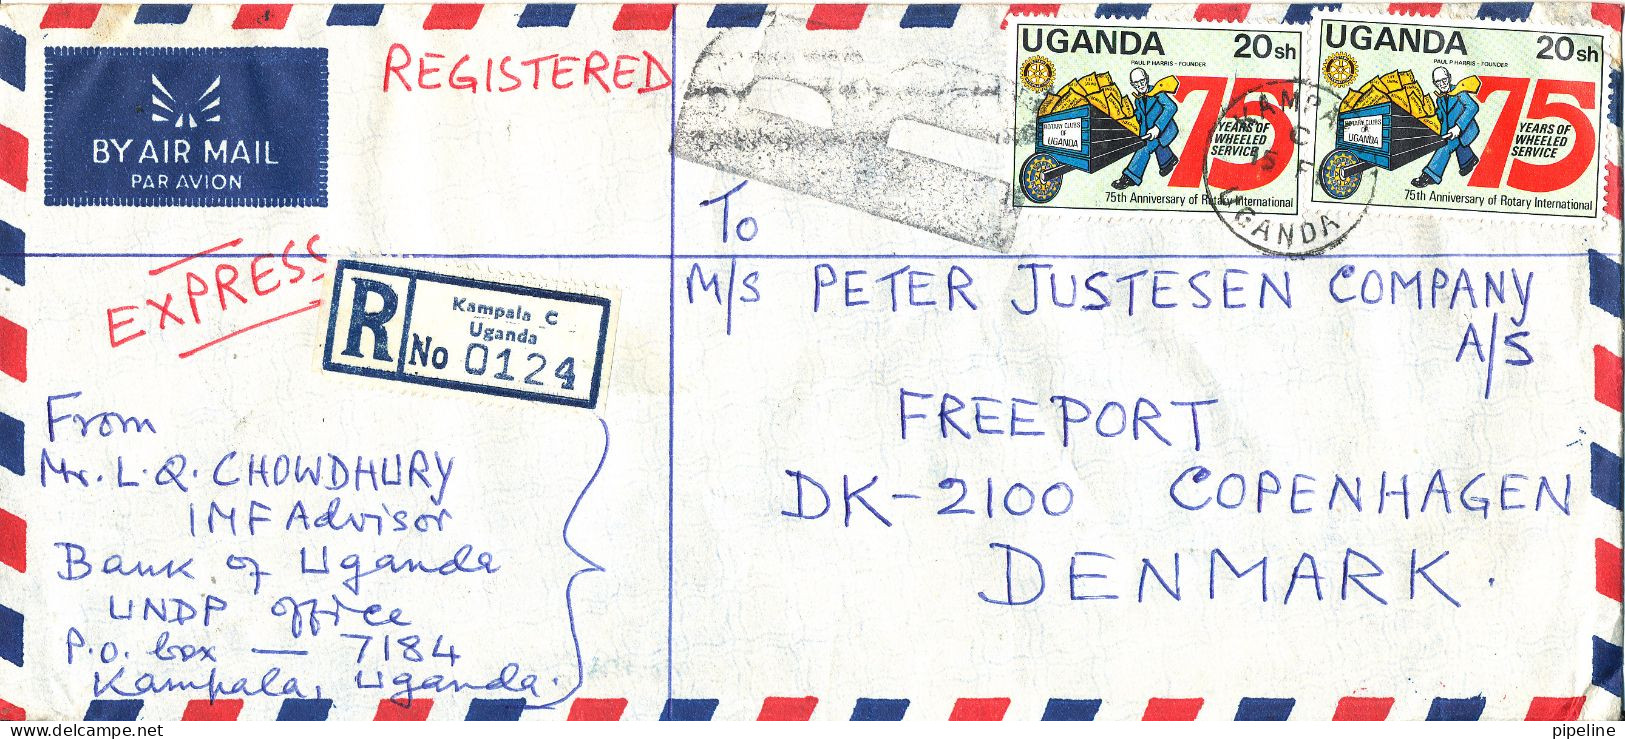 BY AIR MAIL
PAR AVION
REGISTERED
EXPRESS
R
Kampala C
Uganda
No 0124
From
Mr. L. Q. CHOWDHURY
IMF Advisor
Bank of Uganda
UNDP office
P.O. box — 7184
Kampala, Uganda.
UGANDA 20sh
PAUL P HARRIS - FOUNDER
ROTARY CLUBS
OF
UGANDA
75
YEARS OF
WHEELED
SERVICE
75th Anniversary of Rotary International
UGANDA 20sh
PAUL P HARRIS - FOUNDER
ROTARY CLUBS
OF
UGANDA
75
YEARS OF
WHEELED
SERVICE
75th Anniversary of Rotary International
KAMPALA
UGANDA
To
M/S PETER JUSTESEN COMPANY
A/S
FREEPORT
DK-2100 COPENHAGEN
DENMARK.
pipeline
delcampe.net